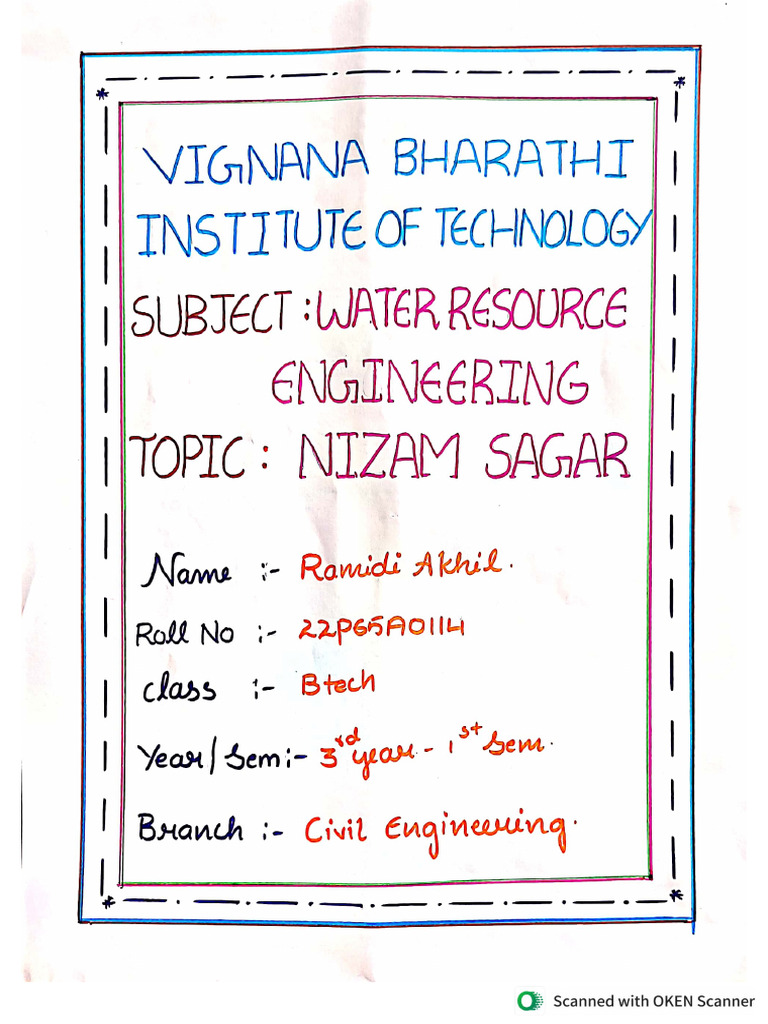 VIGNANA BHARATHI
INSTITUTE OF TECHNOLOGY
SUBJECT : WATER RESOURCE
ENGINEERING
TOPIC : NIZAM SAGAR
Name :- Ramidi Akhil.
Roll No :- 22P65A0114
class :- Btech
Year/Sem :- 3rd year - 1st Sem.
Branch :- Civil Engineering.
Scanned with OKEN Scanner